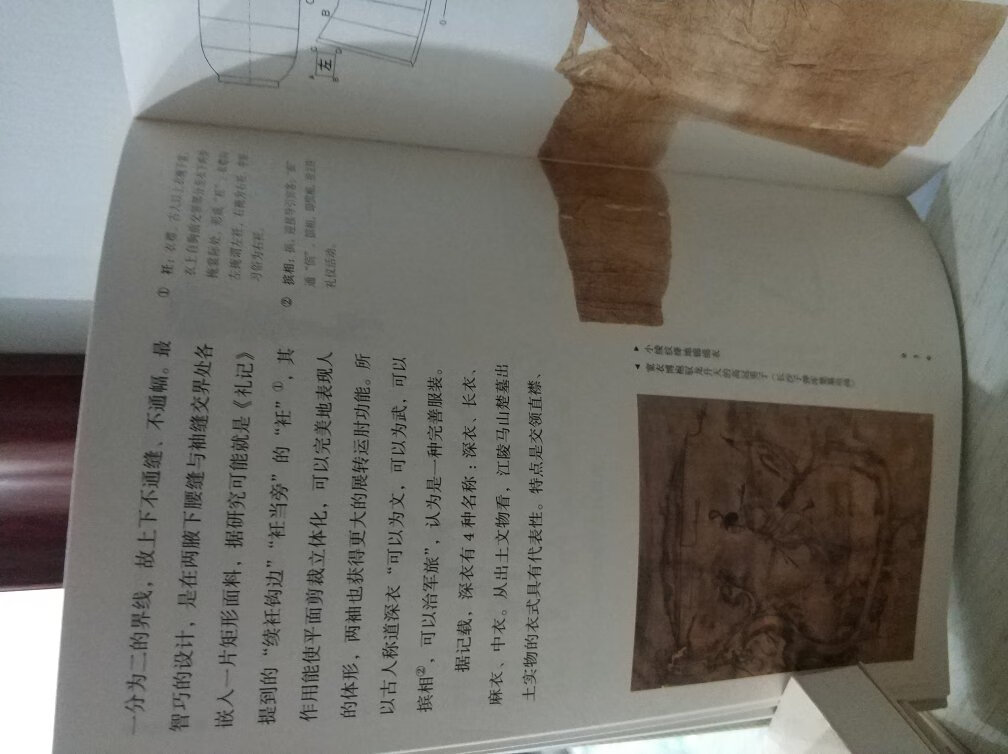 一分为二的界线，故上下不通缝、不通幅。最
智巧的设计，是在两腋下腰缝与袖缝交界处各
嵌入一片矩形面料，据研究可能就是《礼记》
提到的“续衽钩边”“衽当旁”的“衽”①，其
作用能使平面剪裁立体化，可以完美地表现人
的体形，两袖也获得更大的展转运肘功能。所
以古人称道深衣“可以为文，可以为武，可以
摈相②，可以治军旅”，认为是一种完善服装。
据记载，深衣有4种名称：深衣、长衣、
麻衣、中衣。从出土文物看，江陵马山楚墓出
土实物的衣式具有代表性。特点是交领直襟、
① 衽：衣襟。古人以上衣襟下垂，
左掩谓左衽，右掩为右衽，
习俗为右衽。
② 摈相：摈，迎接导引宾客，
礼仪活动。
左
A
B
C
D
B
0